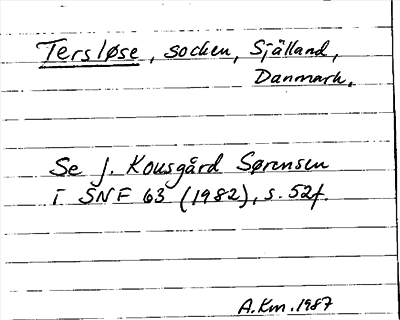 Tersløse, socken, Själland,
Danmark.
Se J. Kousgård Sørensen
i SNF 63 (1982), s. 52f.
A.Km. 1987